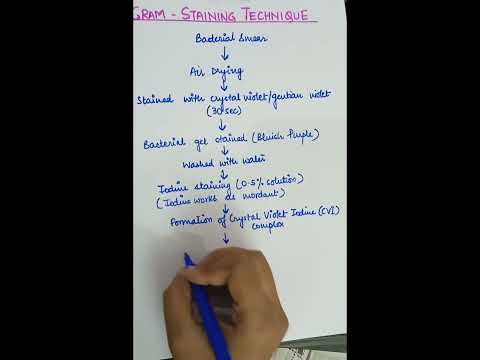 GRAM - STAINING TECHNIQUE
Bacterial Smear
Air Drying
Stained with crystal violet/gentian violet
(30 sec)
Bacterial get stained (Bluish Purple)
Washed with water
Iodine staining (0.5% solution)
(Iodine works as mordant)
Formation of Crystal Violet Iodine (CVI)
complex